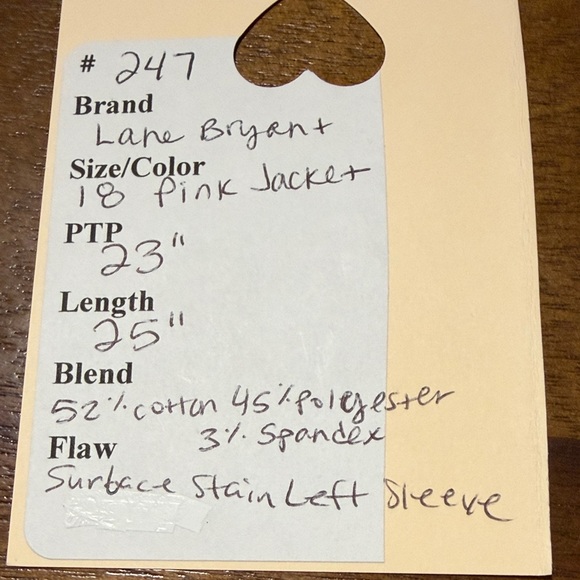 # 247
Brand
Lane Bryant
Size/Color
18 Pink Jacket
PTP
23"
Length
25"
Blend
52% cotton 45% polyester
3% Spandex
Flaw
Surface Stain Left Sleeve